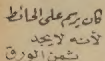 كان يرسم على الحائط
لأنه لا يجد
ثمن الورق